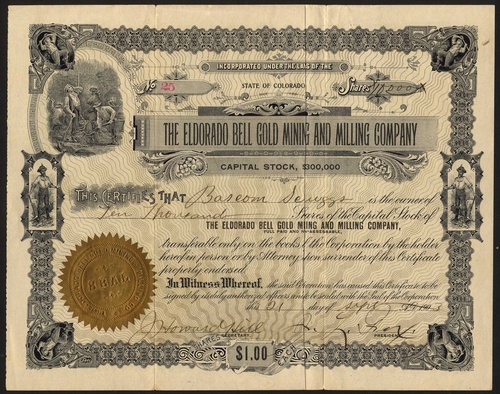 INCORPORATED UNDER THE LAWS OF THE
STATE OF COLORADO
No 25
Shares 10,000
THE ELDORADO BELL GOLD MINING AND MILLING COMPANY
CAPITAL STOCK, $300,000
THIS CERTIFIES THAT Bascom Scruggs is the owner of
Ten Thousand Shares of the Capital Stock of
THE ELDORADO BELL GOLD MINING AND MILLING COMPANY,
FULL PAID AND NON-ASSESSABLE,
transferable only on the books of the Corporation by the holder
hereof in person or by Attorney upon surrender of this Certificate
properly endorsed
In Witness Whereof, the said Corporation has caused this Certificate to be
signed by its duly authorized officers and to be sealed with the Seal of the Corporation
this 21 day of Sept
J Howard Hill
SECRETARY
PRESIDENT
SHARES $1.00 EACH
SEAL